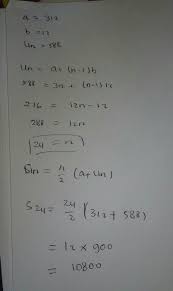 a = 312
b = 12
Un = 588
Un = a + (n-1) b
588 = 312 + (n-1) 12
276 = 12n - 12
288 = 12n
24 = n
Sn = n/2 (a + Un)
S24 = 24/2 (312 + 588)
= 12 x 900
= 10800